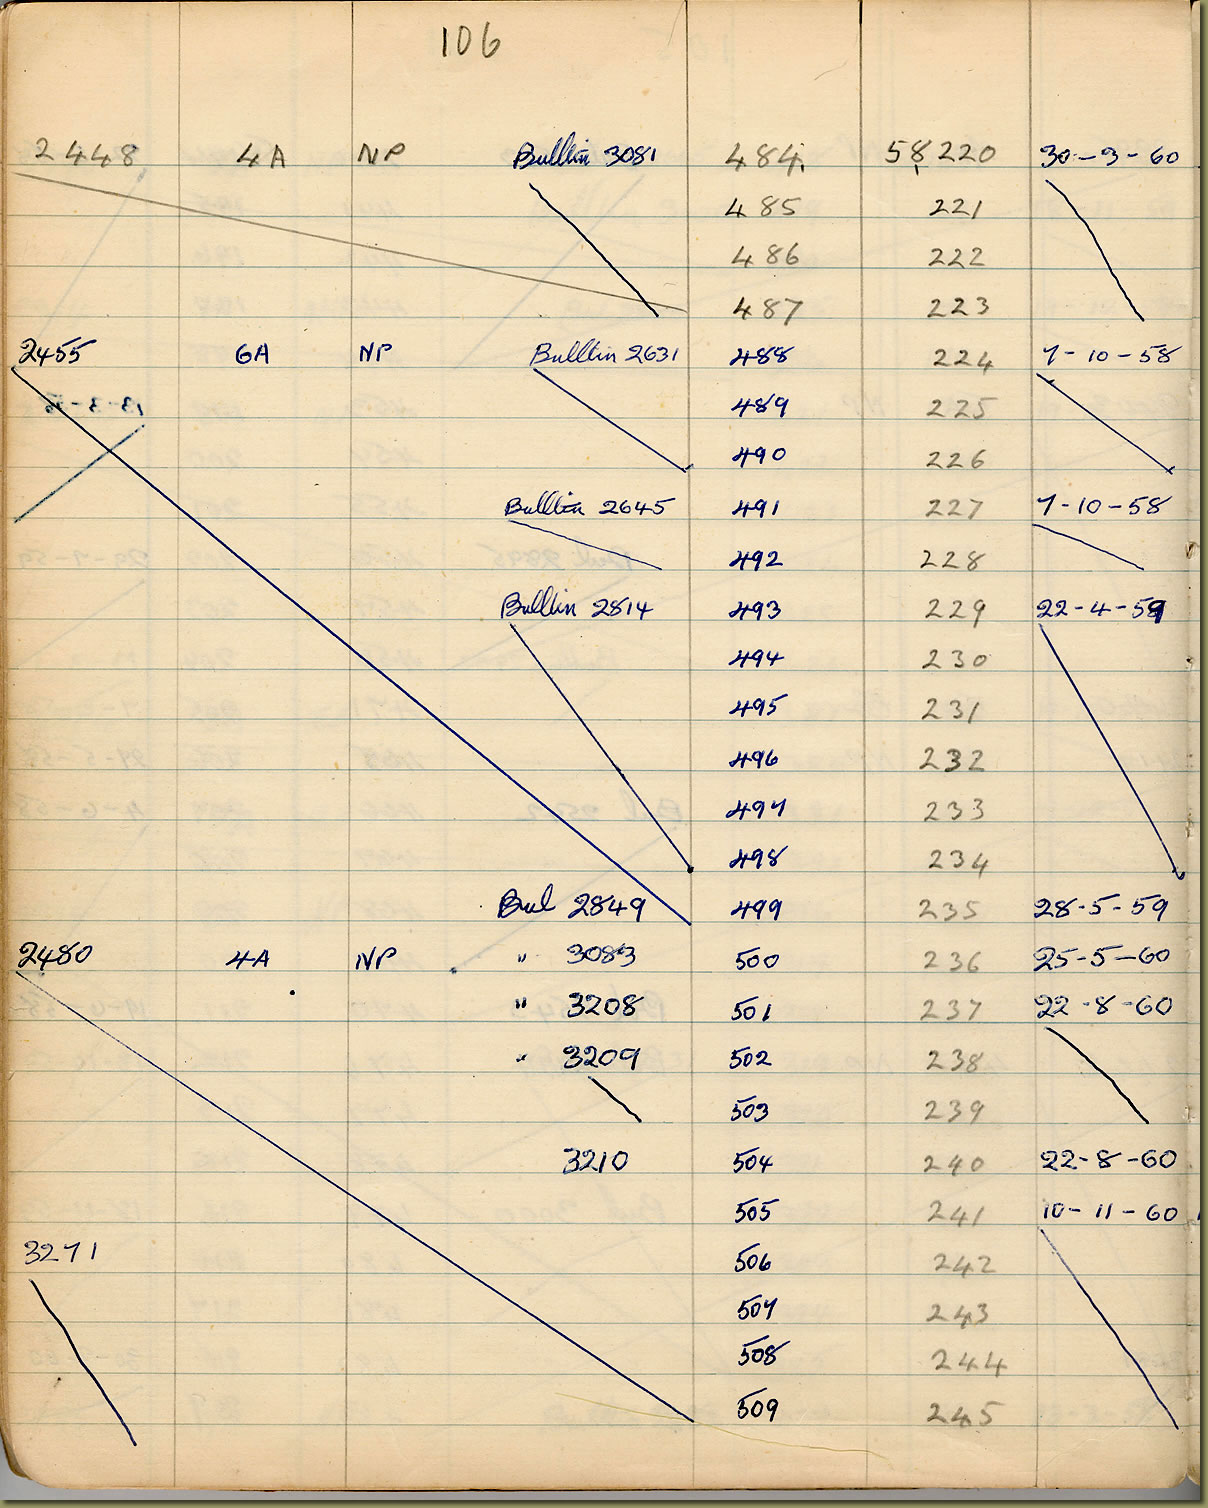 106
2448 4A NP Bulltin 3081 484 58220 30-3-60
485 221
486 222
487 223
2455 6A NP Bulltin 2631 488 224 7-10-58
489 225
490 226
Bulltin 2645 491 227 7-10-58
492 228
Bulltin 2814 493 229 22-4-59
494 230
495 231
496 232
497 233
498 234
Bul 2849 499 235 28-5-59
2480 4A NP " 3083 500 236 25-5-60
" 3208 501 237 22-8-60
" 3209 502 238
503 239
3210 504 240 22-8-60
505 241 10-11-60
3271 506 242
507 243
508 244
509 245